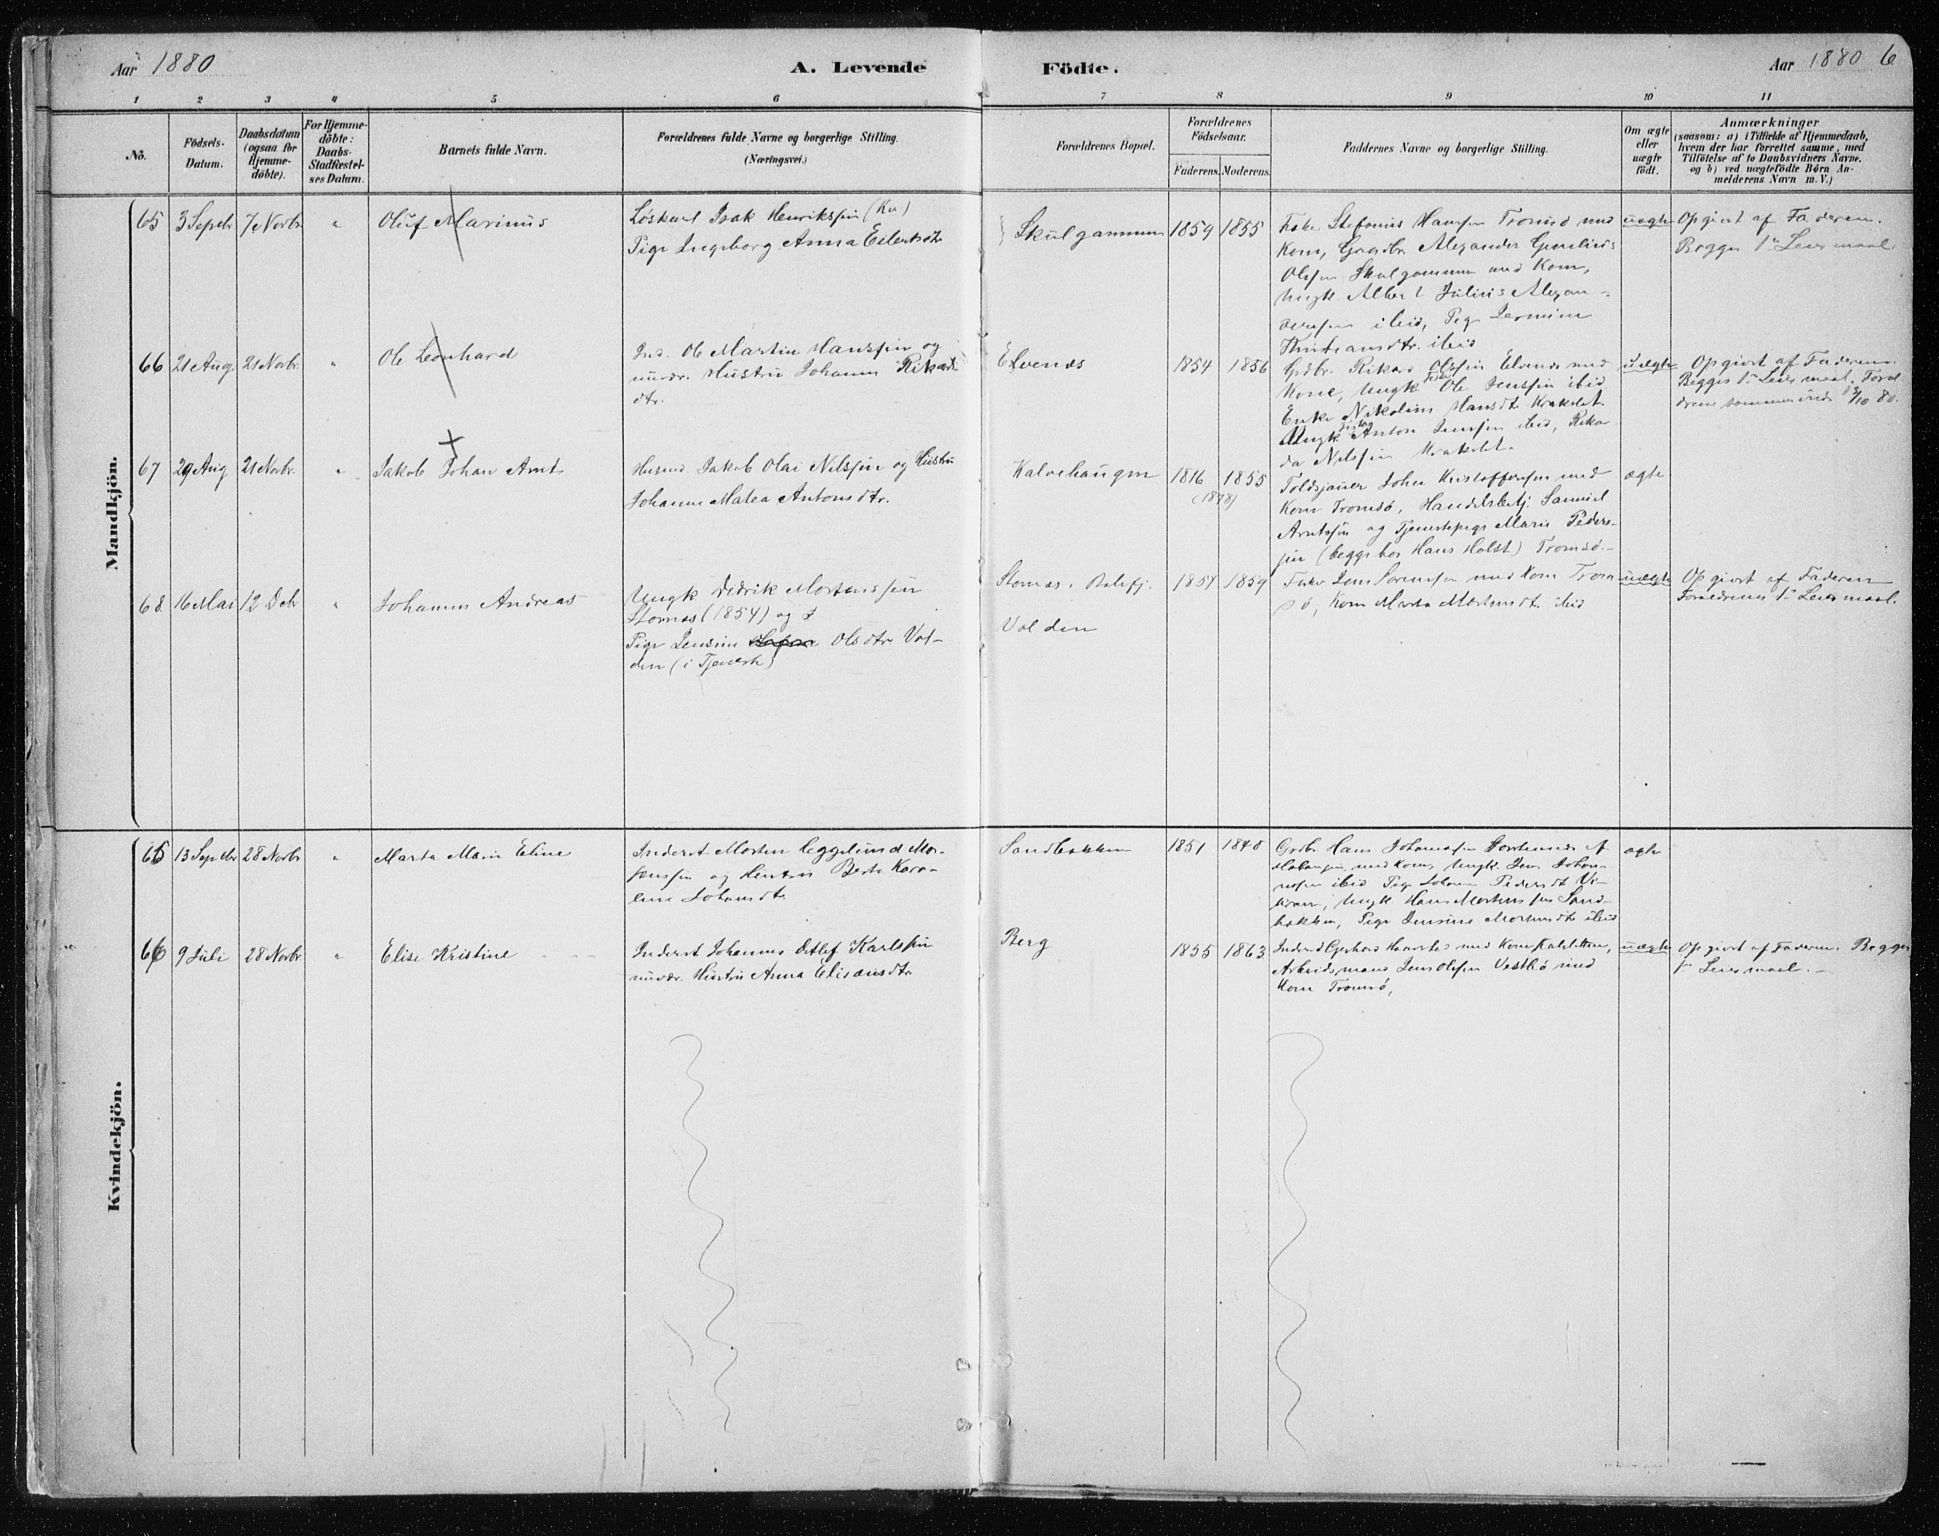 Aar 1880
A. Levende Födte.
Aar 1880 6
1 2 3 4 5 6 7 8 9 10 11
No.
Födsels-Datum.
Daabsdatum (ogsaa for Hjemme-döbte).
For Hjemme-döbte: Daabs-Stadfæstel-ses Datum.
Barnets fulde Navn.
Forældrenes fulde Navne og borgerlige Stilling.
(Næringsvei.)
Forældrenes Bopæl.
Forældrenes Födselsaar.
Faderens. Moderens.
Faddernes Navne og borgerlige Stilling.
Om ægte eller uægte födt.
Anmærkninger
(saasom: a) i Tilfælde af Hjemmedaab,
hvem der har forrettet samme, med
Tilföielse af to Daabsvidners Navne.
og b) ved uægtefödte Børn An-
melderens Navn m. V.)
Mandkjön.
65 3 Septbr 7 Novbr " Oluf Marinus
Løskarl Isak Henriksen (Kv)
Pige Ingeborg Anna Eilertsdtr
Skulgammen 1859 1855
Fisker Stefanus Hansen Tromsø med
Kone, Gaardbr. Alexander
Olsen Skulgammen med Kone,
Ungk. Albert Julius Alexan-
dersen ibid, Pige
ibid
uægte
Opgivet af Faderen.
Begges 1ste Leiermaal.
66 21 Aug. 21 Novbr. " Ole Leonhard
Ind. Ole Martin Hanssen og
nuvær. Hustru Johanna Rikards-
dtr.
Elvenæs 1854 1856
Grdbr. Rikard Olssen Elvenæs med
Kone, Ungk Ole Jenssen ibid
Enke Nikoline Hansdtr
Ungk Anton Jenssen ibid, Rikar-
da Nilssen
uægte
Opgivet af Faderen.
Begges 1ste Leiermaal. Foræl-
drene sammenviede 3/10 80.
67 29 Aug 21 Novbr. " Jakob Johan Arnt
Husmd. Jakob Olai Nilssen og Hustru
Johanne Matea Antonsdtr.
Kalvehaugen 1816 1855
(1878)
Johan Kristoffersen med
Kone Tromsø, Handelsbetj. Samuel
Arntssen og Tjenestepige Marie Peder-
sen (begge hos Hans Holst) Tromsø.
ægte
68 16 Mai 12 Debr " Johannes Andreas
Ungk Didrik Mortenssen
Stornæs (1854) og
Pige Jensine Olsdtr Vol-
den (i Tjeneste)
Stornæs, Balsfj. 1854 1859
Volden
Fisker Jens Sørensen med Kone Trom
sø, Kone Marta Mortensdtr ibid
uægte
Opgivet af Faderen
Forældrenes 1ste Leiermaal.
Kvindekjön.
65 13 Septbr 28 Novbr " Marta Marie Eline
Inderst Morten Eggelund Mor-
tenssen og Hustru Berte Karo-
line Johansdtr
Sandbakken 1851 1840
Grdbr Hans Johannesen
Malangen med Kone, Ungk. Jens Johan-
nesen ibid Pige Johanna Pedersdt Vi-
kran, Ungk Hans Mortenssen Sand-
bakken, Pige Jensine Mortensdtr ibid
ægte
66 9 Juli 28 Novbr " Elise Kristine
Inderst Johannes Detlef Karlssen
nuvær. Hustru Anna Elisæusdtr
Berg 1855 1863
Inderst Gerhard med Kone
Arbeidsmand Jens Olssen Vestbø med
Kone Tromsø,
uægte
Opgivet af Faderen. Begges
1ste Leiermaal.